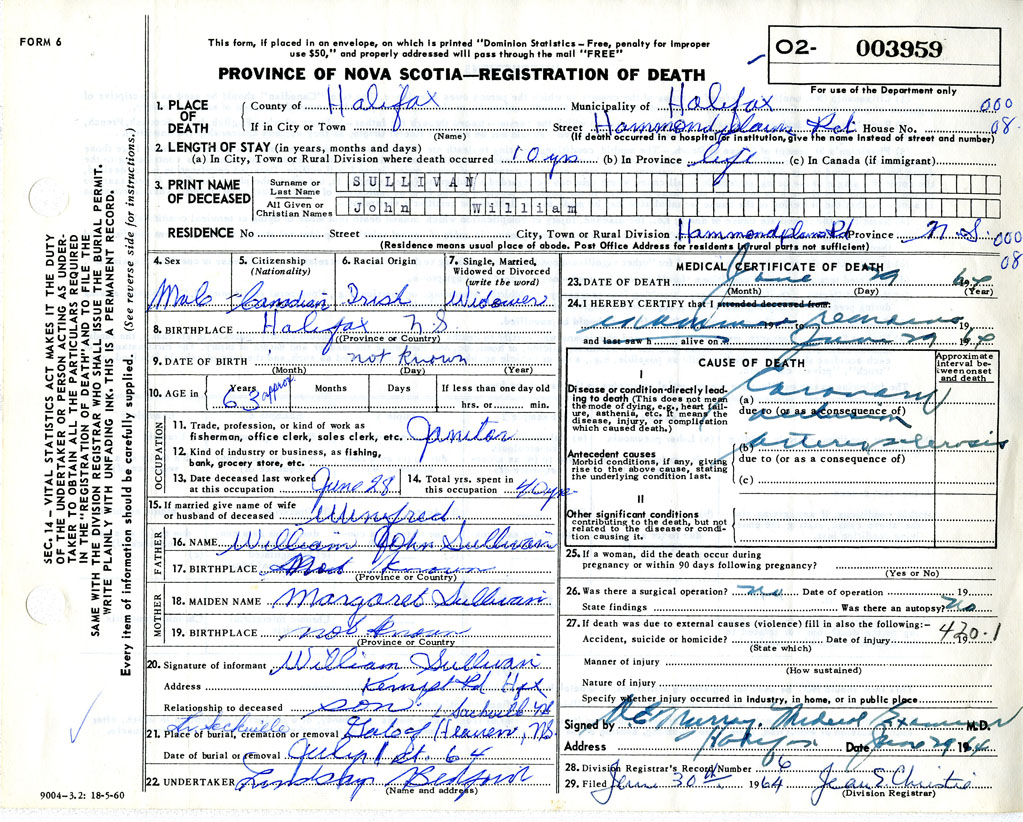 FORM 6
This form, if placed in an envelope, on which is printed "Dominion Statistics – Free, penalty for improper
use $50," and properly addressed will pass through the mail "FREE"
O2- 003959
For use of the Department only
PROVINCE OF NOVA SCOTIA—REGISTRATION OF DEATH
1. PLACE OF DEATH
County of Halifax Municipality of Halifax 000
If in City or Town (Name) Street Hammond plains Rd House No. 08
(If death occurred in a hospital or institution, give name instead of street and number)
2. LENGTH OF STAY (in years, months and days)
(a) In City, Town or Rural Division where death occurred 10 yrs (b) In Province life (c) In Canada (if immigrant)
3. PRINT NAME OF DECEASED
Surname or Last Name SULLIVAN
All Given or Christian Names John William
RESIDENCE No Street City, Town or Rural Division Hammond plains Rd Province N.S. 000
(Residence means usual place of abode. Post Office Address for residents in rural parts not sufficient) 08
4. Sex Male
5. Citizenship (Nationality) Canadian
6. Racial Origin Irish
7. Single, Married, Widowed or Divorced (write the word) Widower
8. BIRTHPLACE Halifax N.S.
(Province or Country)
9. DATE OF BIRTH not known
(Month) (Day) (Year)
10. AGE in Years 63 approx. Months Days If less than one day old hrs. or min.
OCCUPATION
11. Trade, profession, or kind of work as fisherman, office clerk, sales clerk, etc. Janitor
12. Kind of industry or business, as fishing, bank, grocery store, etc.
13. Date deceased last worked at this occupation June 28
14. Total yrs. spent in this occupation 40 yrs
15. If married give name of wife or husband of deceased Winifred
FATHER
16. NAME William John Sullivan
17. BIRTHPLACE Not Known
(Province or Country)
MOTHER
18. MAIDEN NAME Margaret Sullivan
19. BIRTHPLACE not known
(Province or Country)
20. Signature of informant William Sullivan
Address Kempt Rd Hfx
Relationship to deceased son
Sackville NS
21. Place of burial, cremation or removal Gate of Heaven, NS
Date of burial or removal July 1 st. 64
22. UNDERTAKER Lindsay Bedford
(Name and address)
MEDICAL CERTIFICATE OF DEATH
23. DATE OF DEATH June 29 1964
(Month) (Day) (Year)
24. I HEREBY CERTIFY that I attended deceased from:
examined remains 19
and last saw h alive on June 29 1964
CAUSE OF DEATH
Approximate interval between onset and death
I
Disease or condition directly leading to death (This does not mean the mode of dying, e.g., heart failure, asthenia, etc. It means the disease, injury, or complication which caused death.)
(a) Coronary
due to (or as a consequence of)
Antecedent causes
Morbid conditions, if any, giving rise to the above cause, stating the underlying condition last.
(b) arteriosclerosis
due to (or as a consequence of)
(c)
II
Other significant conditions contributing to the death, but not related to the disease or condition causing it.
25. If a woman, did the death occur during pregnancy or within 90 days following pregnancy?
(Yes or No)
26. Was there a surgical operation? No Date of operation 19
State findings Was there an autopsy? No
27. If death was due to external causes (violence) fill in also the following:- 420.1
Accident, suicide or homicide? Date of injury 19
(State which)
Manner of injury
(How sustained)
Nature of injury
Specify whether injury occurred in industry, in home, or in public place
Signed by Murray Medical Examiner M.D.
Address Halifax Date June 29 1964
28. Division Registrar's Record Number 6
29. Filed June 30th 1964 Jean E Christie
(Division Registrar)
SEC. 14 – VITAL STATISTICS ACT MAKES IT THE DUTY
OF THE UNDERTAKER OR PERSON ACTING AS UNDER-
TAKER TO OBTAIN ALL THE PARTICULARS REQUIRED
IN THE "REGISTRATION OF DEATH" AND FILE THE
SAME WITH THE DIVISION REGISTRAR WHO SHALL ISSUE THE BURIAL PERMIT.
WRITE PLAINLY WITH UNFADING INK – THIS IS A PERMANENT RECORD.
Every item of information should be carefully supplied. (See reverse side for instructions.)
9004–3.2: 18-5-60